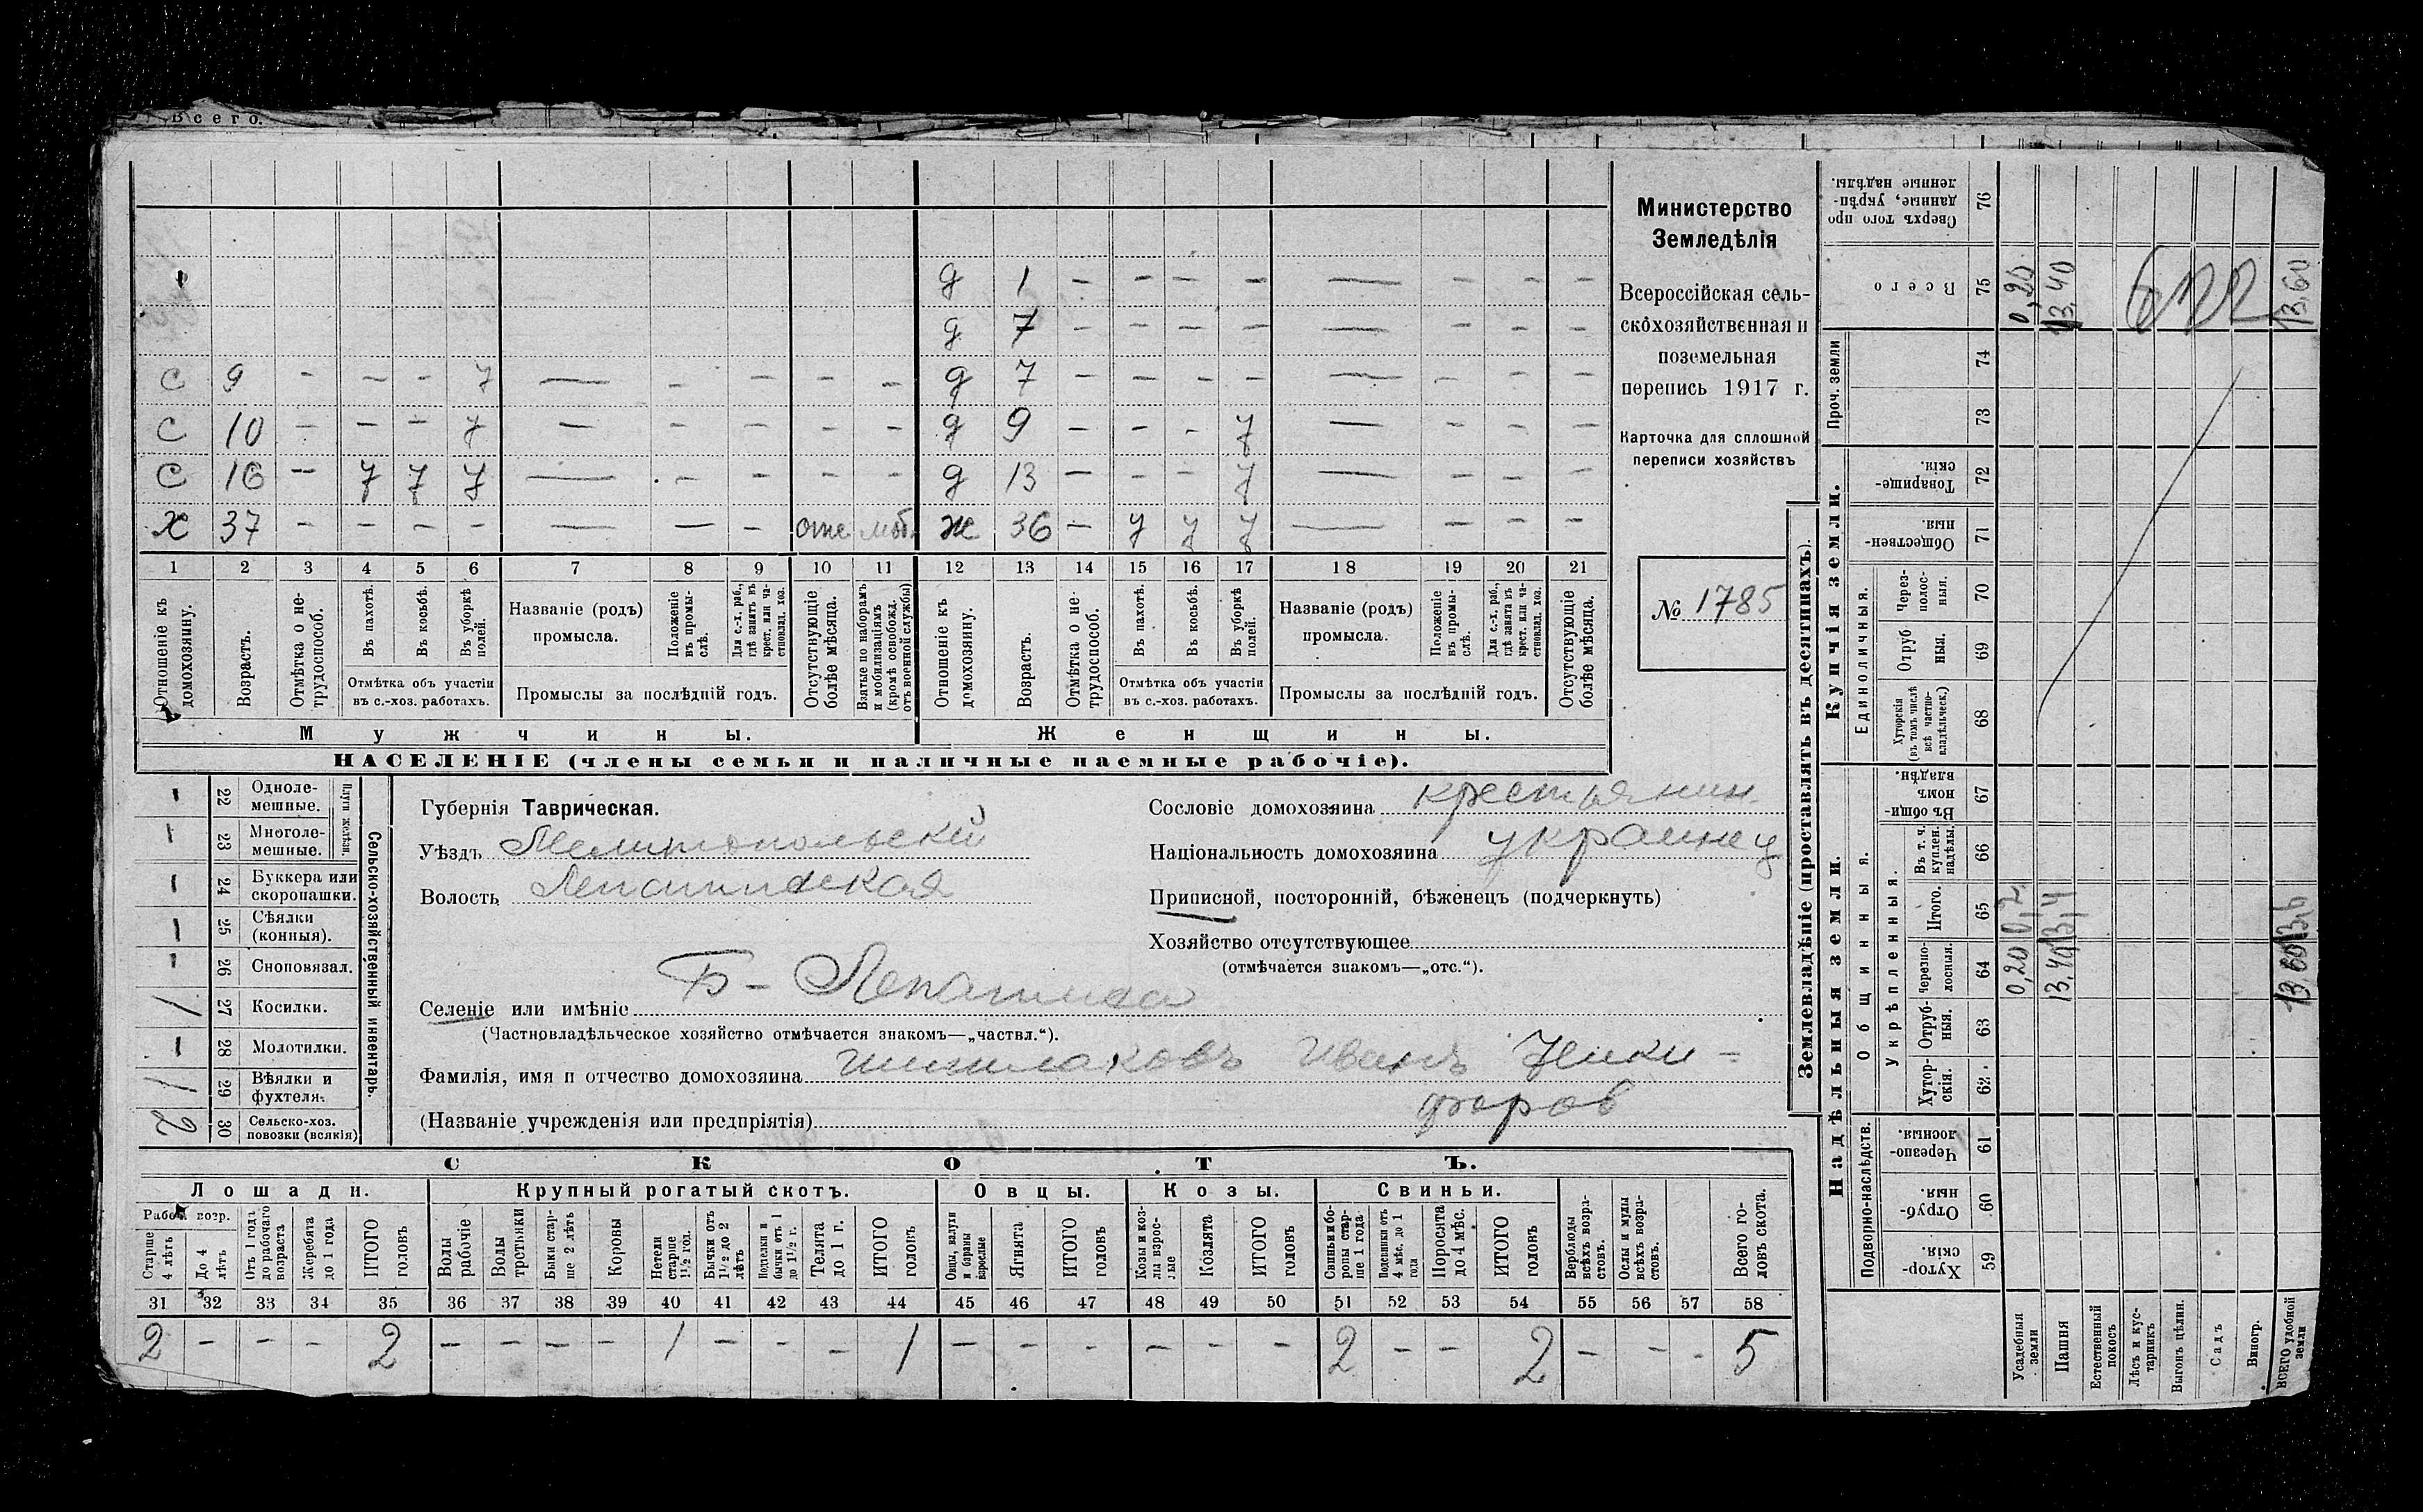 Всего.
1 д 1 — — — — — — — —
д 7 — — — — — — — —
с 9 - — - 7 — - — — — д 7 — — — — — — — —
с 10 - — — 7 — — — — — д 9 — — - 7 — — — —
с 16 — 7 7 7 — — — — — д 13 — — — 7 — — — —
х 37 — — — — — — — отс моб. ж 36 — 7 7 7 — — — —
1 2 3 4 5 6 7 8 9 10 11 12 13 14 15 16 17 18 19 20 21
Отношеніе къ домохозяину.
Возрастъ.
Отмѣтка о нетрудоспособ.
Въ пахотѣ.
Въ косьбѣ.
Въ уборкѣ полей.
Отмѣтка объ участіи
въ с.-хоз. работахъ.
Названіе (родъ)
промысла.
Положеніе въ промыслѣ.
Для с.-х. раб., гдѣ занятъ въ крест. или частновлад. хоз.
Промыслы за послѣдній годъ.
Отсутствующіе болѣе мѣсяца.
Взятые по наборамъ и мобилизаціямъ (кромѣ освобожд. отъ военной службы)
Отношеніе къ домохозяину.
Возрастъ.
Отмѣтка о нетрудоспособ.
Въ пахотѣ.
Въ косьбѣ.
Въ уборкѣ полей.
Отмѣтка объ участіи
въ с.-хоз. работахъ.
Названіе (родъ)
промысла.
Положеніе въ промыслѣ.
Для с.-х. раб., гдѣ занята въ крест. или частновлад. хоз.
Промыслы за послѣдній годъ.
Отсутствующіе болѣе мѣсяца.
Мужчины. Женщины.
НАСЕЛЕНІЕ (члены семьи и наличные наемные рабочіе).
Министерство
Земледѣлія
Всероссійская сель-
скохозяйственная и
поземельная
перепись 1917 г.
Карточка для сплошной
переписи хозяйствъ
№ 1785
Сельско-хозяйственный инвентарь.
Плуги желѣзн.
— 22 Однолемешные.
— 23 Многолемешные.
— 24 Буккера или скоропашки.
— 25 Сѣялки (конныя).
— 26 Сноповязал.
1 27 Косилки.
— 28 Молотилки.
1 29 Вѣялки и фухтеля.
2 30 Сельско-хоз. повозки (всякія)
Губернія Таврическая.
Уѣздъ Мелитопольскій
Волость Лепатихская
Сословіе домохозяина крестьянин
Національность домохозяина украинец
Приписной, посторонній, бѣженецъ (подчеркнуть)
Хозяйство отсутствующее
(отмѣчается знакомъ—„отс.“).
Селеніе или имѣніе Б - Лепатиха
(Частновладѣльческое хозяйство отмѣчается знакомъ—„частвл.“).
Фамилія, имя и отчество домохозяина Шишлаковъ Иванъ Ники-
форов
(Названіе учрежденія или предпріятія)
СКОТЪ.
Лошади. Крупный рогатый скотъ. Овцы. Козы. Свиньи.
Рабоч. возр.
Старше 4 лѣтъ
До 4 лѣтъ
Отъ 1 года до рабочаго возраста
Жеребята до 1 года
ИТОГО головъ
Волы рабочіе
Волы третьяки
Быки старше 2 лѣтъ
Коровы
Нетели старше 1½ год.
Бычки отъ 1½ до 2 лѣтъ
Подтелки и бычки отъ 1 до 1½ г.
Телята до 1 г.
ИТОГО головъ
Овцы, валухи и бараны взрослые
Ягнята
ИТОГО головъ
Козы и козлы взрослые
Козлята
ИТОГО головъ
Свиньи и боровы старше 1 года
Подсвинки отъ 4 мѣс. до 1 года
Поросята до 4 мѣс.
ИТОГО головъ
Верблюды всѣхъ возрастовъ.
Ослы и мулы всѣхъ возрастовъ.
Всего головъ скота.
31 32 33 34 35 36 37 38 39 40 41 42 43 44 45 46 47 48 49 50 51 52 53 54 55 56 57 58
2 — — — 2 — — — — 1 — — — 1 — — — — — — 2 — — 2 — — - 5
Землевладѣніе (проставлять въ десятинахъ).
Купчія земли.
Надѣльныя земли.
Сверхъ того проданные, укрѣпленные надѣлы. 76
Всего 75 0,20 13,40 13,60
Проч. земли 74
73
Товарищескія. 72
Общественныя. 71
Единоличныя.
Черезполосныя. 70
Отрубныя. 69
Хуторскія (въ томъ числѣ всѣ частновладѣльческ.) 68
Общинныя.
Въ общинномъ владѣн. 67
Укрѣпленныя.
Въ т. ч. куплен. надѣлы. 66
Итого. 65 0,2 13,4 13,6
Черезполосныя. 64 0,20 13,40 13,60
Отрубныя. 63
Хуторскія. 62
Подворно-наслѣдств.
Черезполосныя. 61
Отрубныя. 60
Хуторскія. 59
Усадебныя земли
Пашня
Естественный покосъ
Лѣсъ и кустарникъ
Выгонъ цѣлин.
Садъ
Виногр.
ВСЕГО удобной земли